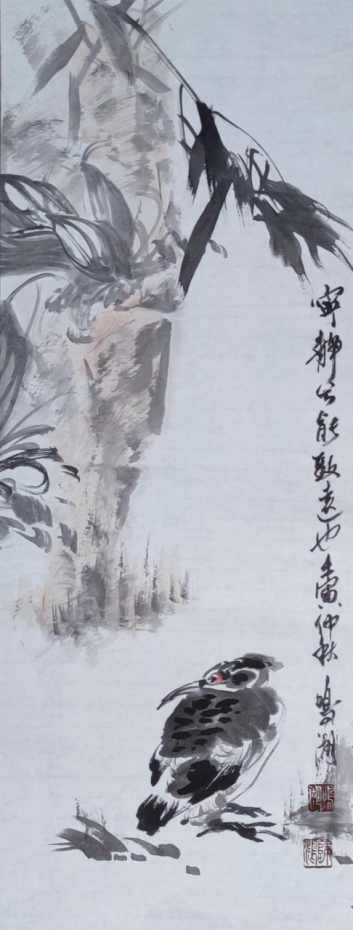 寧静方能致遠也壬寅仲秋